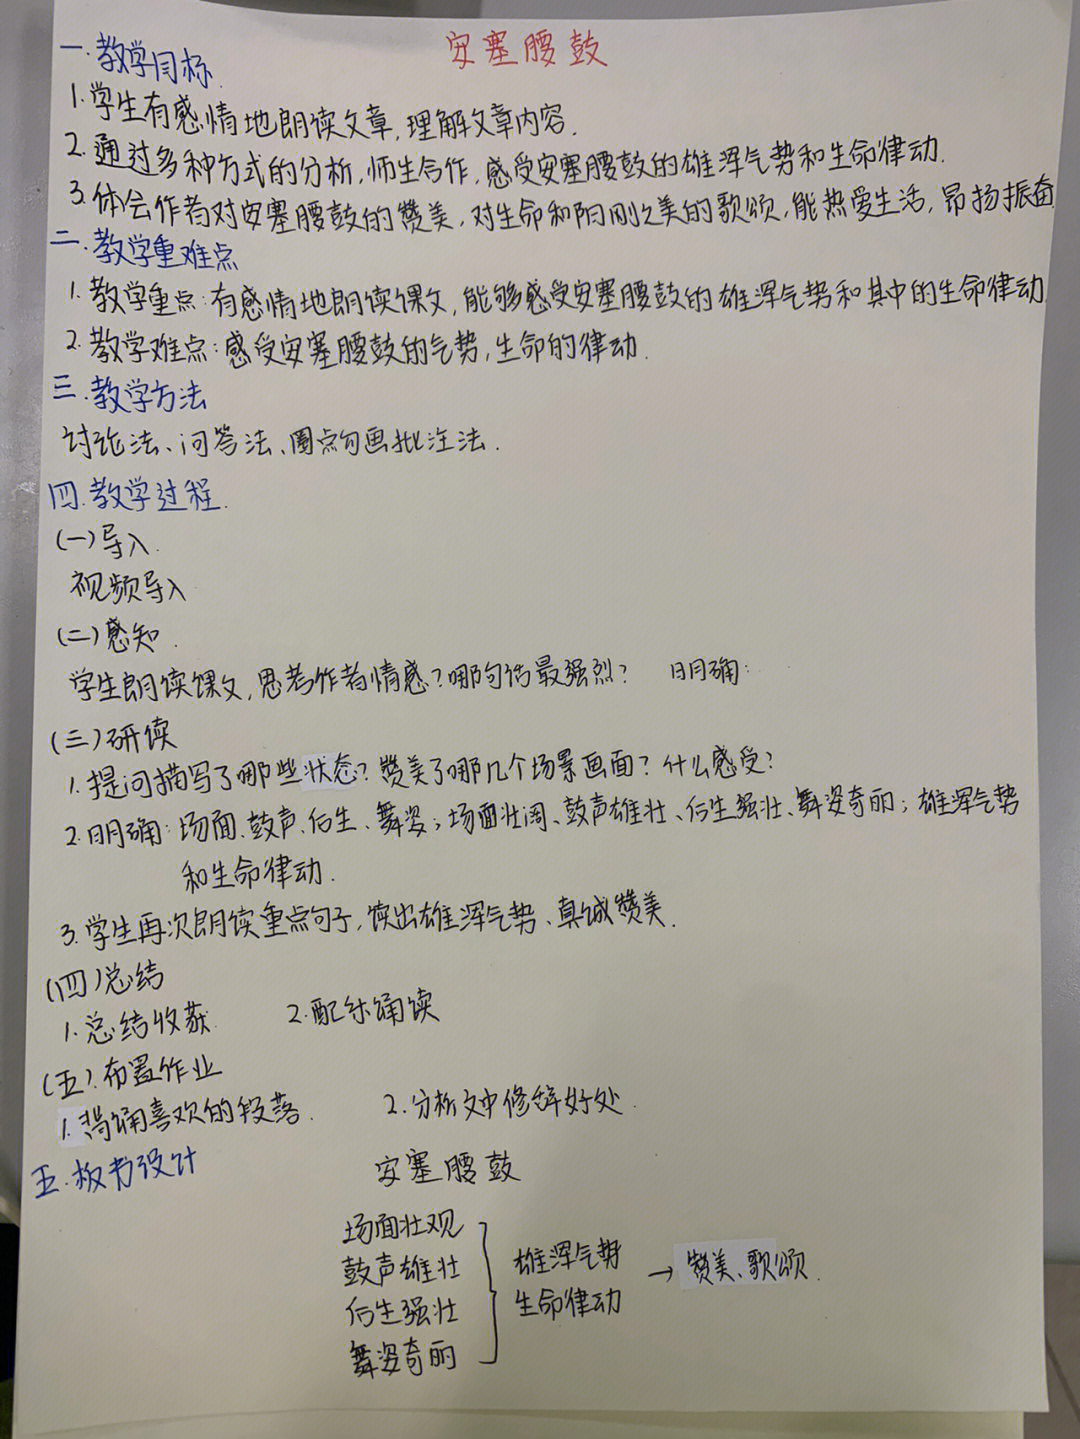 安塞腰鼓
一.教学目标.
1.学生有感情地朗读文章,理解文章内容.
2.通过多种方式的分析,师生合作,感受安塞腰鼓的雄浑气势和生命律动.
3.体会作者对安塞腰鼓的赞美,对生命和阳刚之美的歌颂,能热爱生活,昂扬振奋.
二.教学重难点
1.教学重点:有感情地朗读课文,能够感受安塞腰鼓的雄浑气势和其中的生命律动.
2.教学难点:感受安塞腰鼓的气势,生命的律动.
三.教学方法
讨论法、问答法、圈点勾画批注法.
四.教学过程.
(一)导入.
视频导入
(二)感知.
学生朗读课文,思考作者情感?哪句话最强烈? 明确:
(三)研读
1.提问描写了哪些状态?赞美了哪几个场景画面?什么感受?
2.明确:场面、鼓声、后生、舞姿;场面壮阔、鼓声雄壮、后生强壮、舞姿奇丽;雄浑气势
和生命律动.
3.学生再次朗读重点句子,读出雄浑气势、真诚赞美.
(四)总结
1.总结收获. 2.配乐诵读
(五).布置作业
1.背诵喜欢的段落. 2.分析文中修辞好处.
五.板书设计
安塞腰鼓
场面壮观
鼓声雄壮
后生强壮
舞姿奇丽
雄浑气势
生命律动
→ 赞美、歌颂.